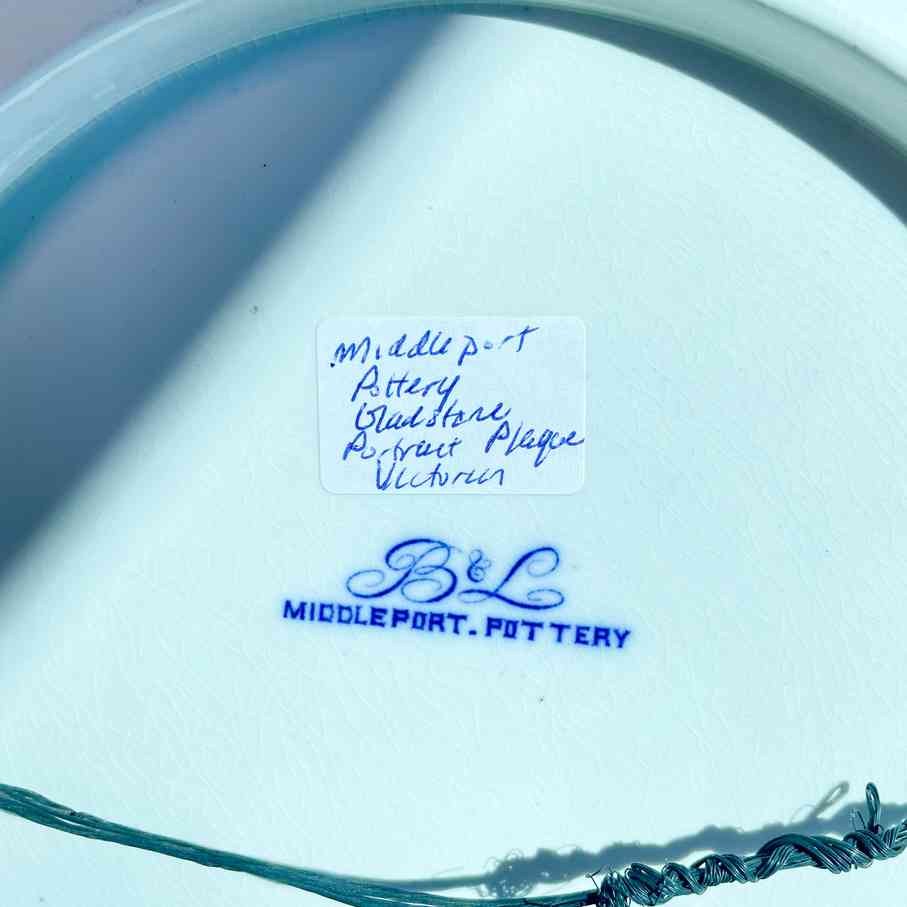 Middleport
Pottery
Gladstone
Portrait Plaque
Victorian
B & L
MIDDLEPORT. POTTERY